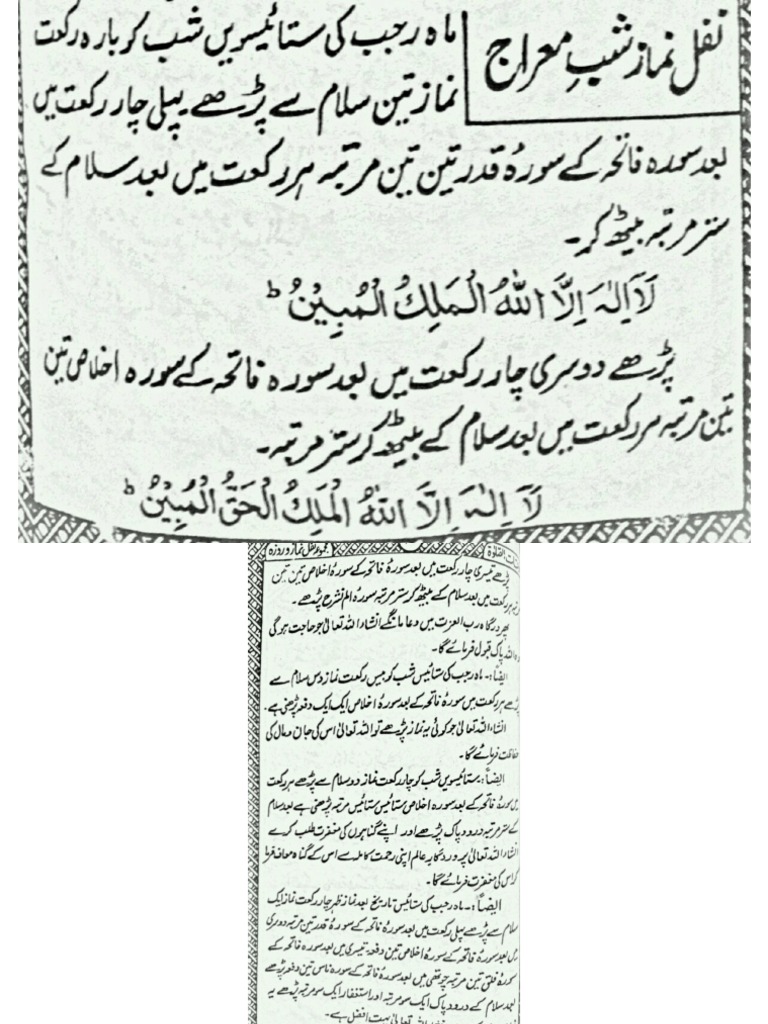 نفل نماز شبِ معراج
ماہ رجب کی ستائیسویں شب کو بارہ رکعت
نماز تین سلام سے پڑھے پہلی چار رکعت میں
بعد سورہ فاتحہ کے سورہ قدر تین تین مرتبہ ہر رکعت میں بعد سلام کے
ستر مرتبہ بیٹھ کر۔
لَاۤ اِلٰہَ اِلَّا اللّٰہُ الْمَلِکُ الْمُبِیْنُ ط
پڑھے دوسری چار رکعت میں بعد سورہ فاتحہ کے سورہ اخلاص تین
تین مرتبہ ہر رکعت میں بعد سلام کے بیٹھ کر ستر مرتبہ۔
لَاۤ اِلٰہَ اِلَّا اللّٰہُ الْمَلِکُ الْحَقُّ الْمُبِیْنُ ط
مجموعہ نفل نماز و روزہ
پڑھے تیسری چار رکعت میں بعد سورہ فاتحہ کے سورہ اخلاص تین تین
ہر رکعت میں بعد سلام کے بیٹھ کر ستر مرتبہ سورہ الم نشرح پڑھے۔
پھر درگاہ رب العزت میں دعا مانگے انشاء اللہ تعالیٰ جو حاجت ہوگی
اللہ پاک قبول فرمائے گا۔
ایضاً:۔ ماہ رجب کی ستائیس شب کو بیس رکعت نماز دس سلام سے
پڑھے ہر رکعت میں سورہ فاتحہ کے بعد سورہ اخلاص ایک ایک دفعہ پڑھنی ہے۔
انشاء اللہ تعالیٰ جو کوئی یہ نماز پڑھے تو اللہ تعالیٰ اس کی جان و مال کی
حفاظت فرمائے گا۔
ایضاً:۔ ستائیسویں شب کو چار رکعت نماز دو سلام سے پڑھے ہر رکعت
میں سورہ فاتحہ کے بعد سورہ اخلاص ستائیس ستائیس مرتبہ پڑھنی ہے بعد سلام
کے ستر مرتبہ درود پاک پڑھے اور اپنے گناہوں کی مغفرت طلب کرے
انشاء اللہ تعالیٰ پروردگار عالم اپنی رحمت کاملہ سے اس کے گناہ معاف فرما
کر اس کی مغفرت فرمائے گا۔
ایضاً:۔ ماہ رجب کی ستائیس تاریخ بعد نماز ظہر چار رکعت نماز ایک
سلام سے پڑھے پہلی رکعت میں بعد سورہ فاتحہ کے سورہ قدر تین مرتبہ دوسری
میں بعد سورہ فاتحہ کے سورہ اخلاص تین دفعہ تیسری میں بعد سورہ فاتحہ کے
سورہ فلق تین مرتبہ چوتھی میں بعد سورہ فاتحہ کے سورہ ناس تین دفعہ پڑھے
بعد سلام کے درود پاک ایک سو مرتبہ اور استغفار ایک سو مرتبہ پڑھے یہ
اللہ تعالیٰ بہت افضل ہے۔